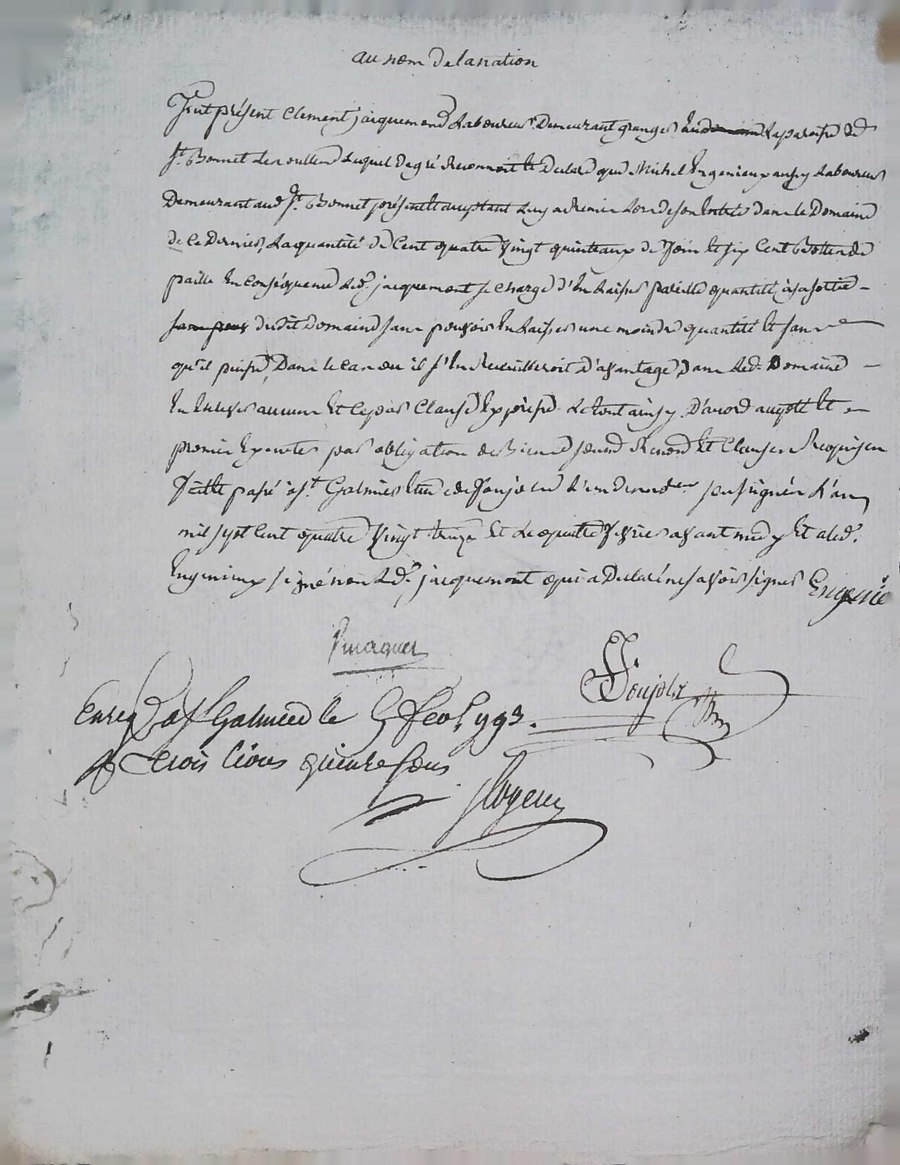 au nom de la nation
fut présent Clement jacquemond Laboureur Demeurant granger paroisse dud
st Bonnet Les oulles Lequel de gré Reconnoit et Declare que Michel Ingenieux aussy Laboureur
Demeurant aud st Bonnet présent et acceptant Luy a Remis Lors de son Entrée dans le Domaine
de ce Dernier, La quantité de Cent quatre Vingt quinteaux de foin Et six Cent Bottes de
paille En Conséquence Led. jacquemont se charge d'En Laisser pareille quantité à sa sortie
dudit Domaine sans pouvoir En Laisser une moindre quantité Et sans
qu'il puisse, Dans le Cas ou il s'En Recueilleroit d'avantage, Dans Led. Domaine
En aucune Et Ce par Clause Expresse. Le tout ainsy D'acord accepté Et
promis Executer par obligation de Biens Et Clauses Requises
fait et passé à st Galmier Etude de foujols L'un des nres soussignés L'an
mil sept Cent quatre Vingt treize Et Le quatre fevrier avant midy Et a led.
Engenieux signé non Led. jacquemont qui a Declaré ne savoir signer Engenie
foujols
Enreg. a st Galmier le 5 fev. 1793.
R trois livres quinze sous